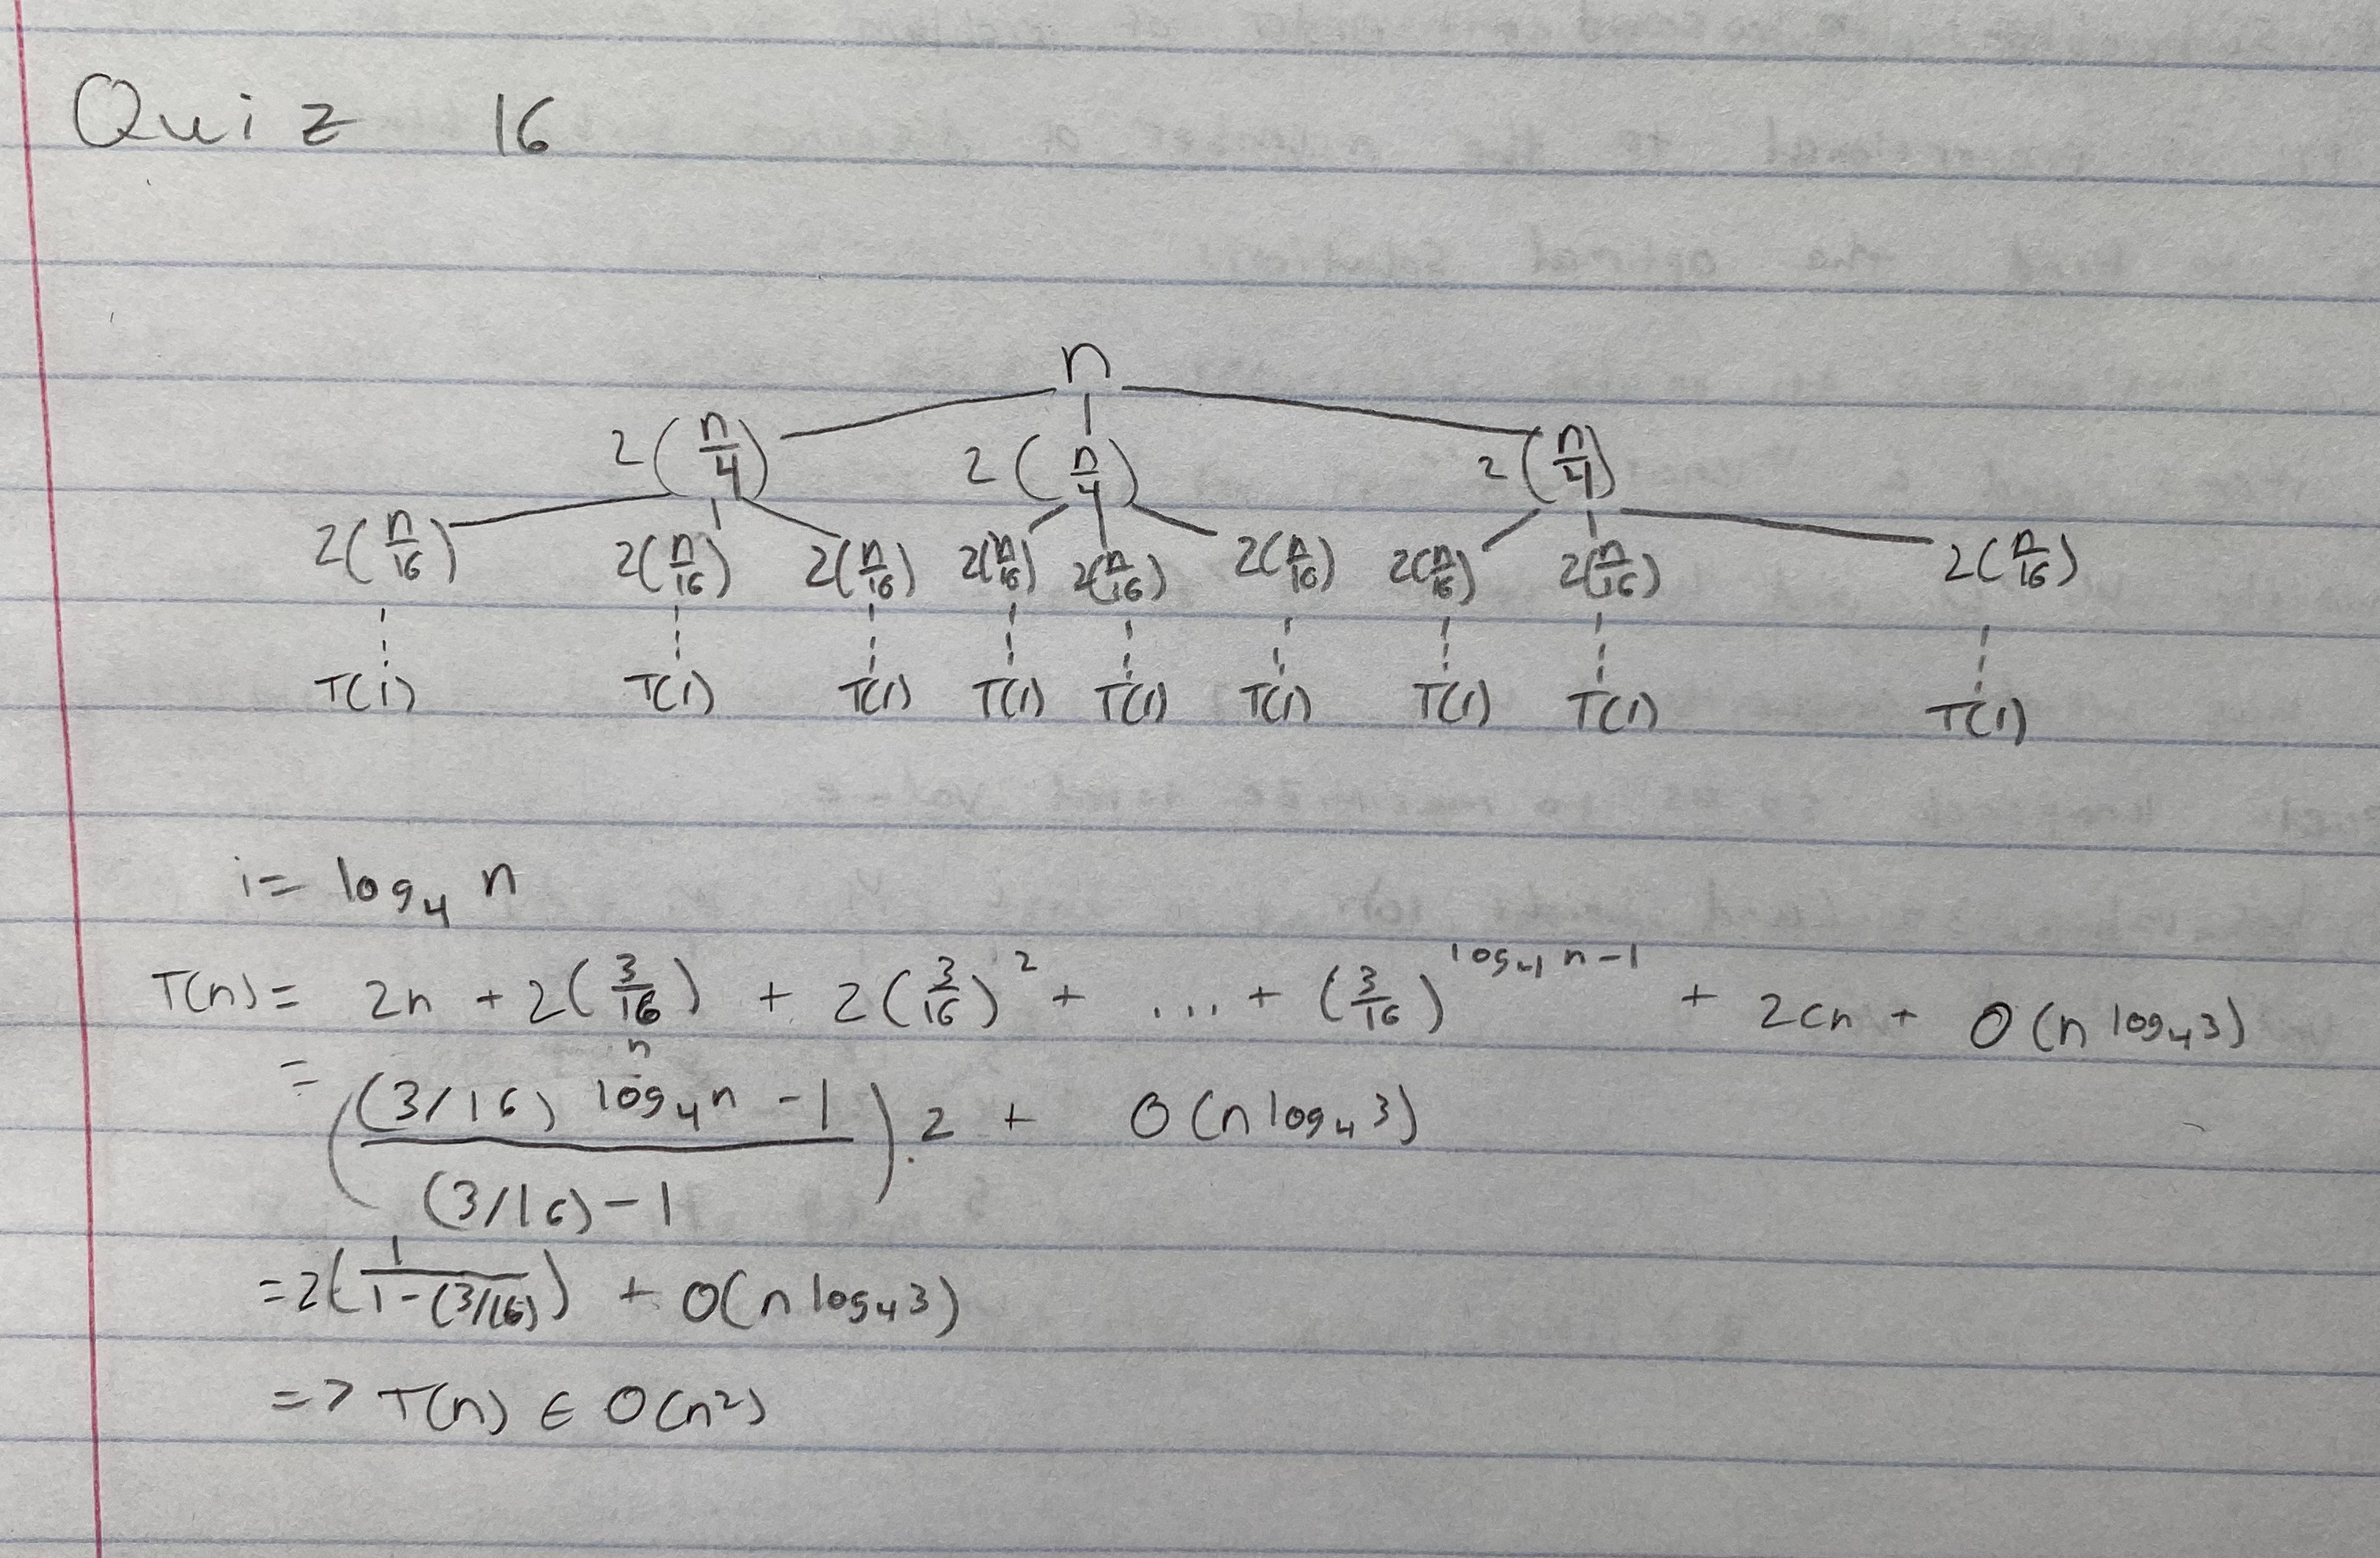 Quiz 16
n
2(n/4) 2(n/4) 2(n/4)
2(n/16) 2(n/16) 2(n/16) 2(n/16) 2(n/16) 2(n/16) 2(n/16) 2(n/16) 2(n/16)
T(1) T(1) T(1) T(1) T(1) T(1) T(1) T(1) T(1)
i = log₄ n
T(n) = 2n + 2(3/16) + 2(3/16)² + ... + (3/16)^(log₄ n - 1) + 2cn + O(n log₄3)
= ((3/16) log₄n - 1 / (3/16) - 1) · 2 + O(n log₄3)
= 2(1 / 1 - (3/16)) + O(n log₄3)
=> T(n) ∈ O(n²)